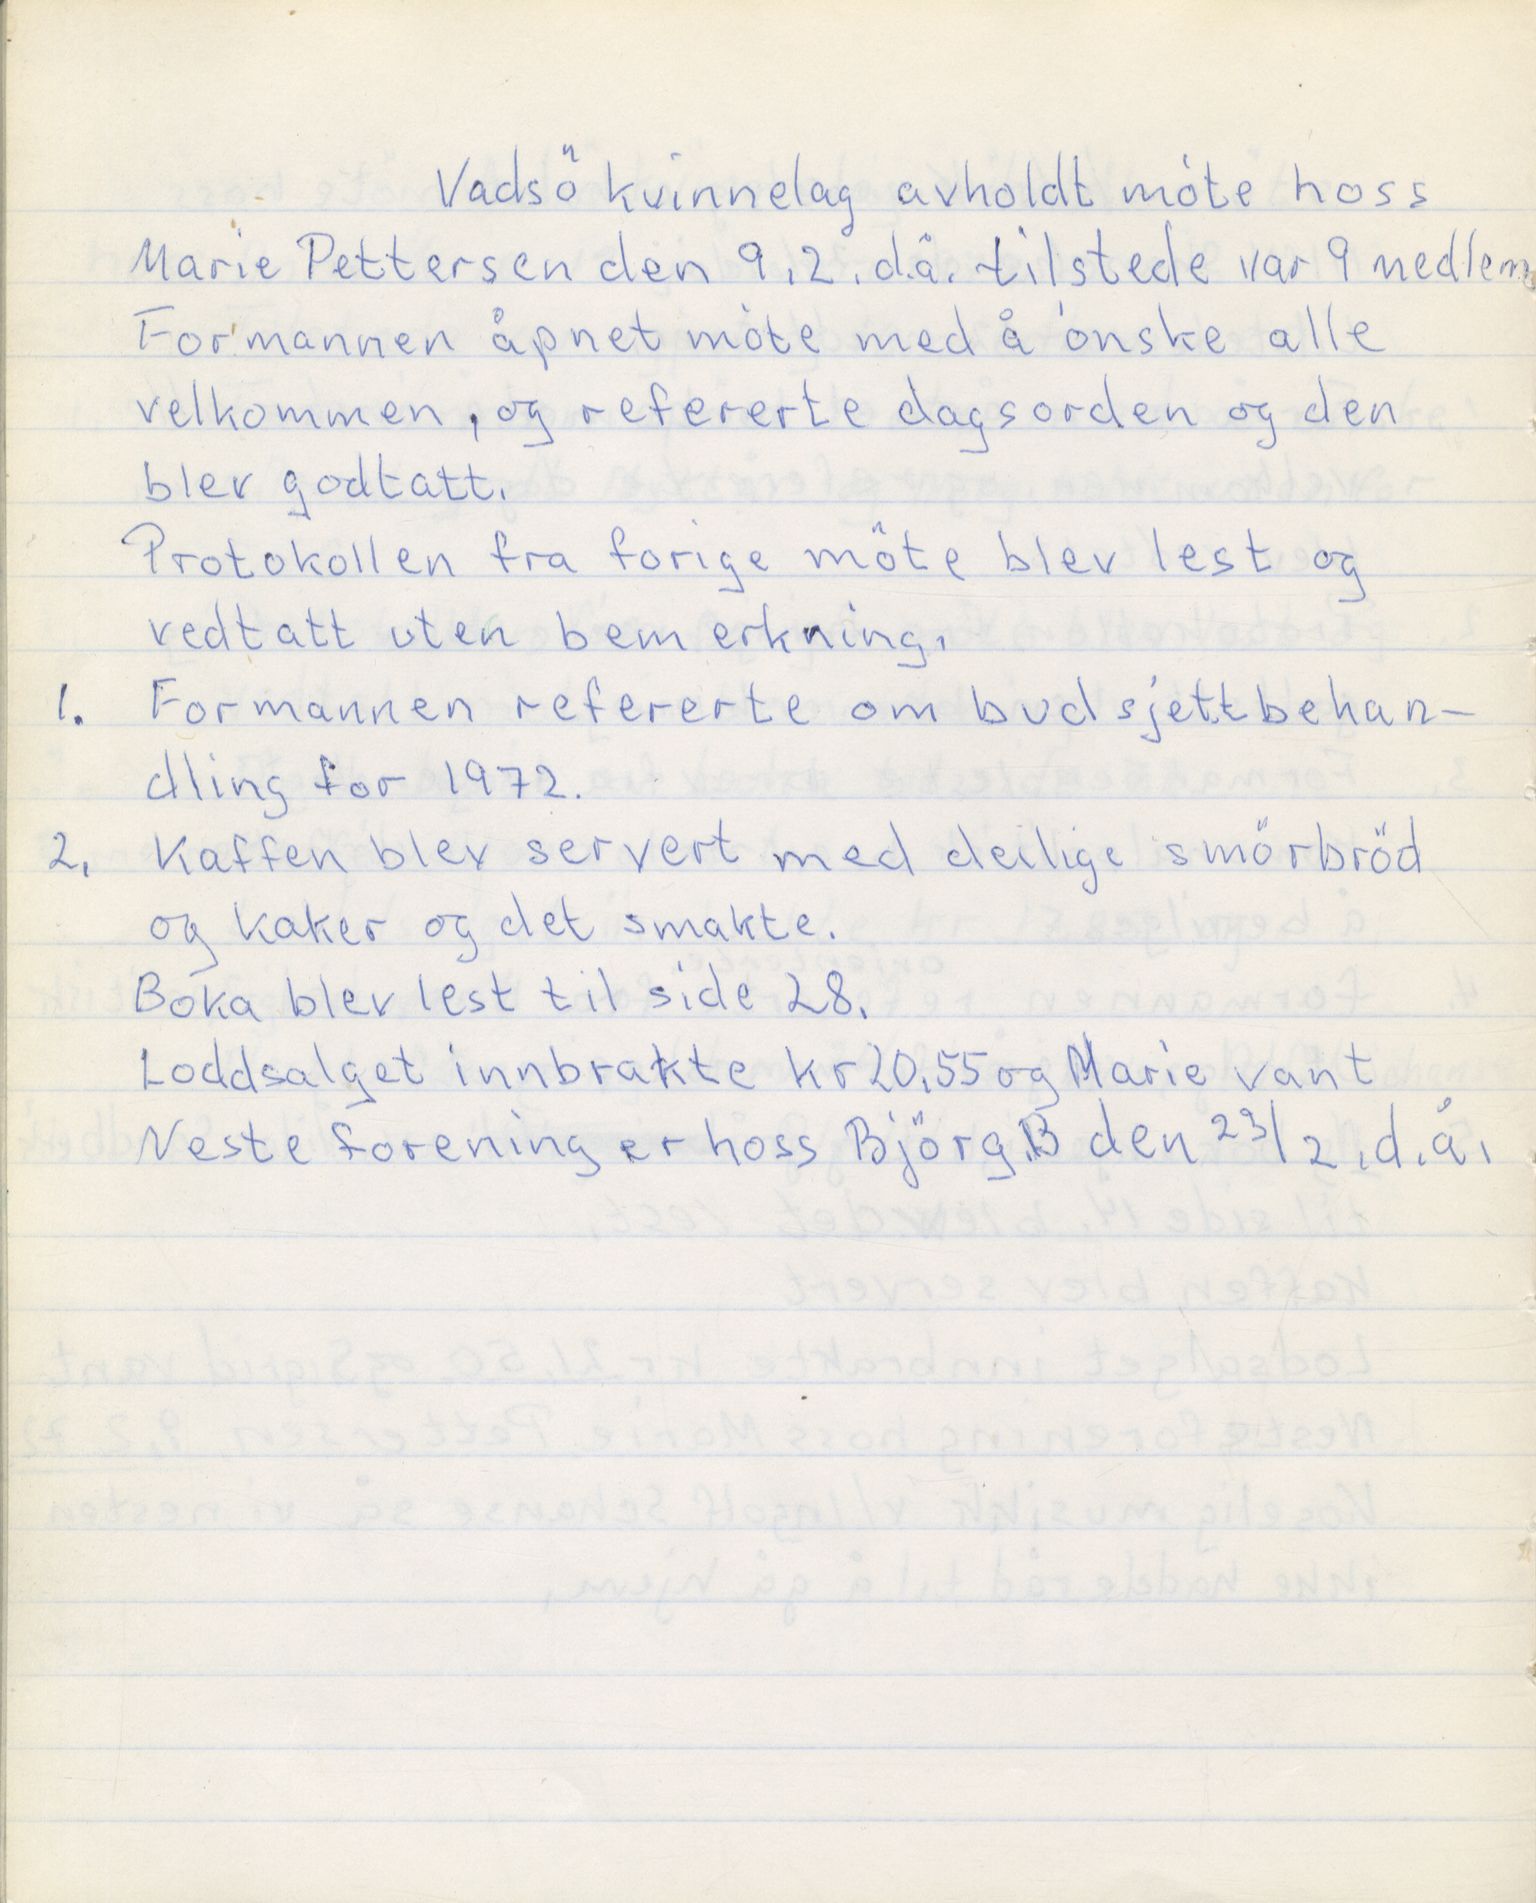 Vadsö kvinnelag avholdt móte hoss
Marie Pettersen den 9.2. d.å. tilstede var 9 medlem
Formannen åpnet móte med å ónske alle
velkommen, og refererte dagsorden og den
blev godtatt.
Protokollen fra forige möte blev lest og
vedtatt uten bemerkning.
1. Formannen refererte om budsjettbehan-
dling for 1972.
2. Kaffen blev servert med deilige smörbröd
og kaker og det smakte.
Boka blev lest til side 28.
Loddsalget innbrakte kr 20,55 og Marie vant
Neste forening er hoss Björg.B den 23/2. d.å.